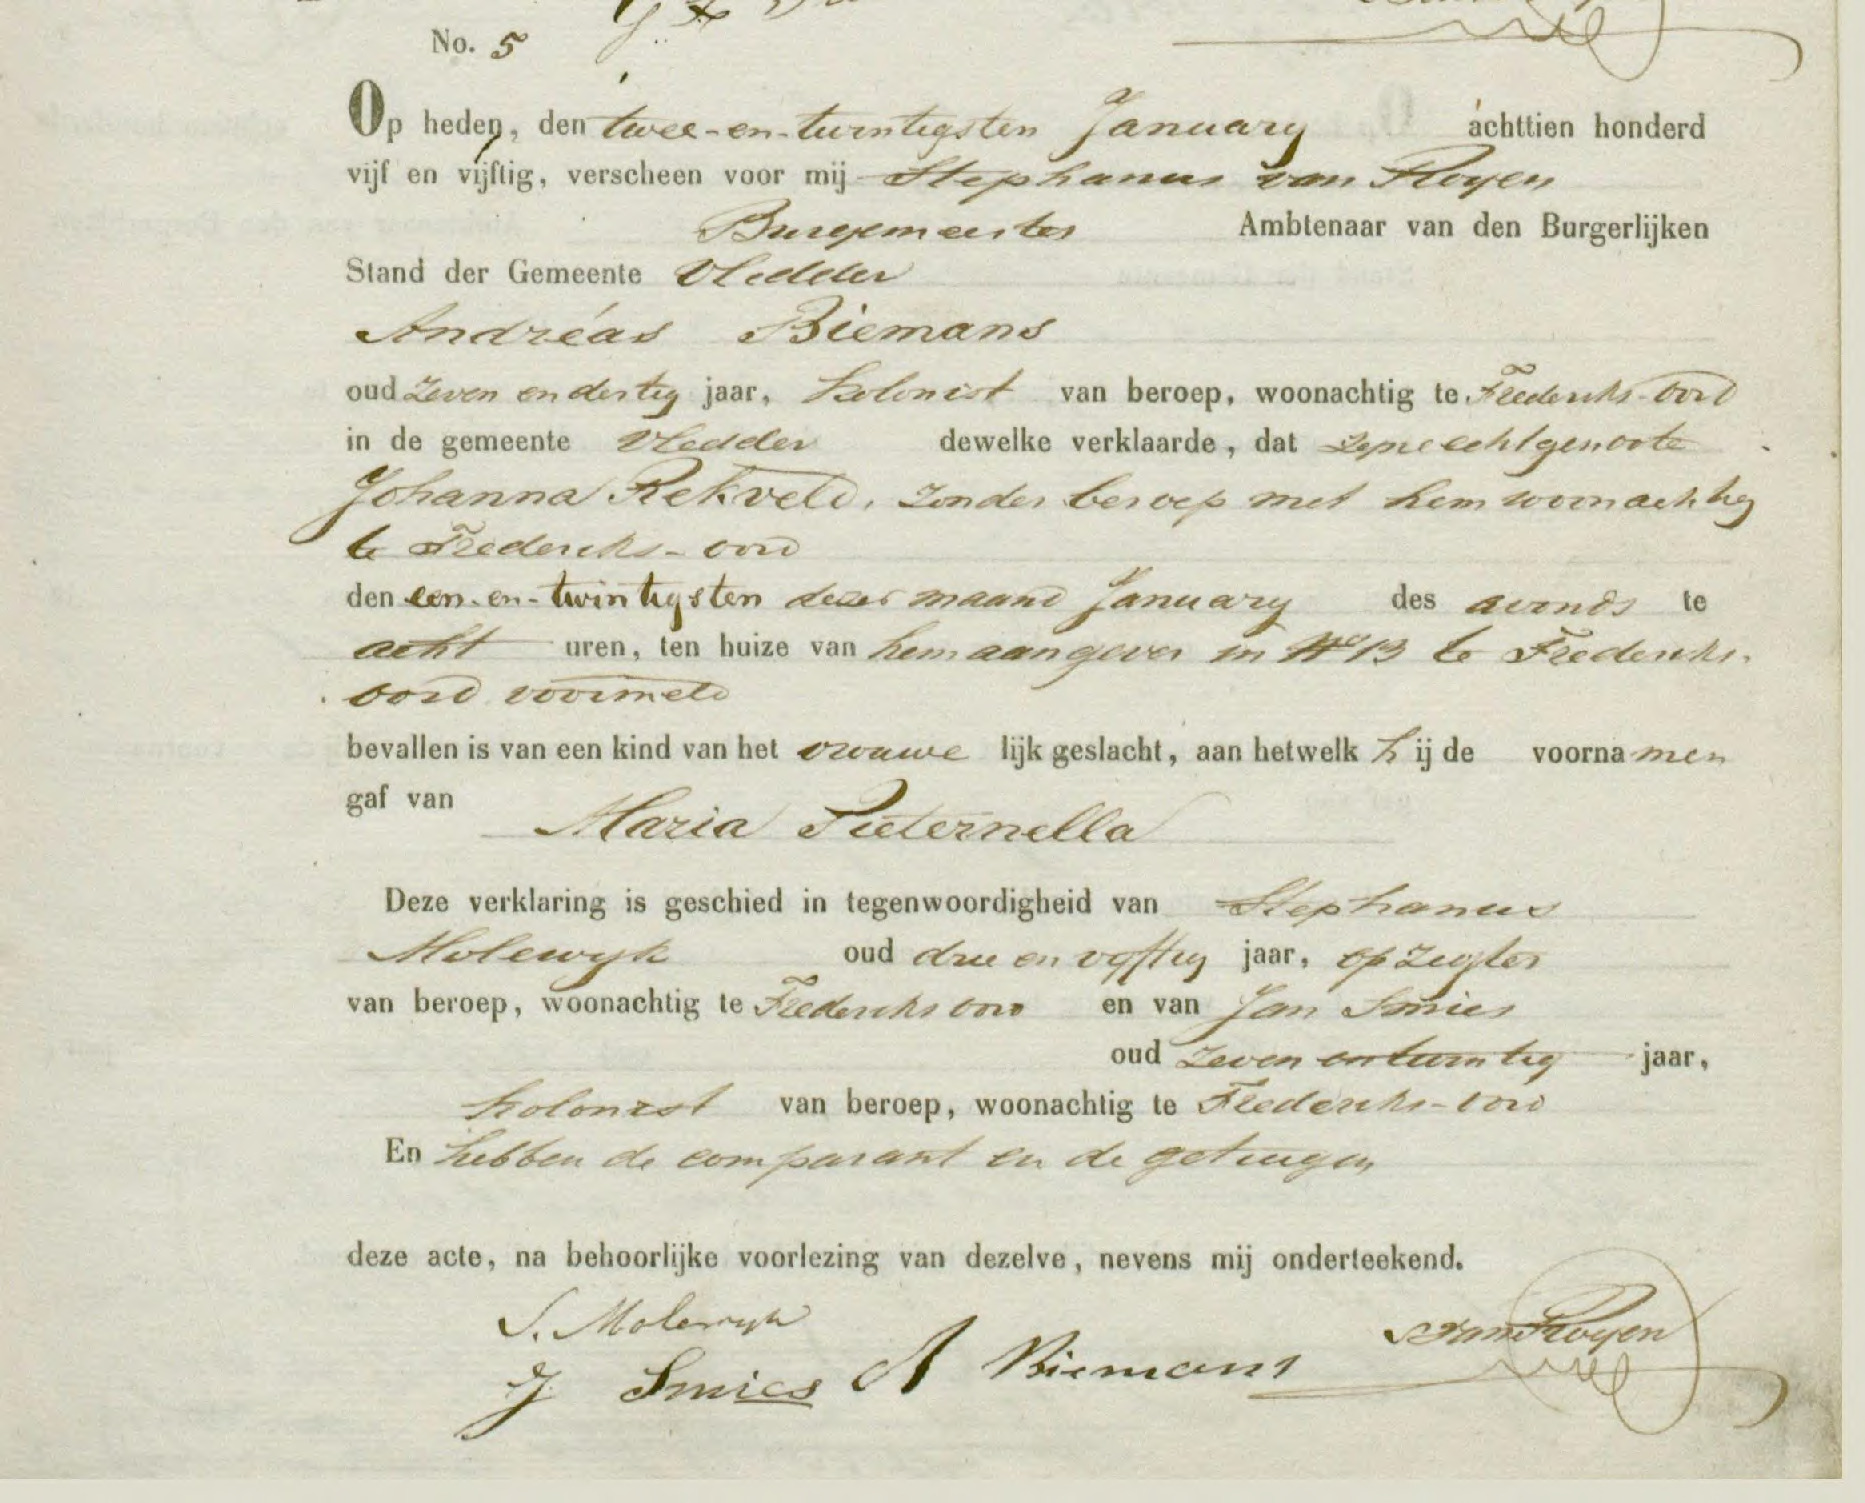 No. 5
Op heden, den twee-en-twintigsten January achttien honderd
vijf en vijftig, verscheen voor mij Stephanus van Royen
Burgemeester Ambtenaar van den Burgerlijken
Stand der Gemeente Vledder
Andréas Biemans
oud zeven en dertig jaar, kolonist van beroep, woonachtig te Frederiks-oord
in de gemeente Vledder dewelke verklaarde, dat zyne echtgenoote
Johanna Rekveld, zonder beroep met hem woonachtig
te Frederiks-oord
den een-en-twintigsten dezer maand January des avonds te
acht uren, ten huize van hem aangever in No 13 te Frederiks-
oord voormeld
bevallen is van een kind van het vrouwe lijk geslacht, aan hetwelk h ij de voorna men
gaf van Maria Pieternella
Deze verklaring is geschied in tegenwoordigheid van Stephanus
Molewyk oud drie en vyftig jaar, opzigter
van beroep, woonachtig te Frederiksoord en van Jan Smies
oud zeven en twintig jaar,
kolonist van beroep, woonachtig te Frederiks-oord
En hebben de comparant en de getuigen
deze acte, na behoorlijke voorlezing van dezelve, nevens mij onderteekend.
S. Molewyk
J Smies A Biemans SvanRoyen